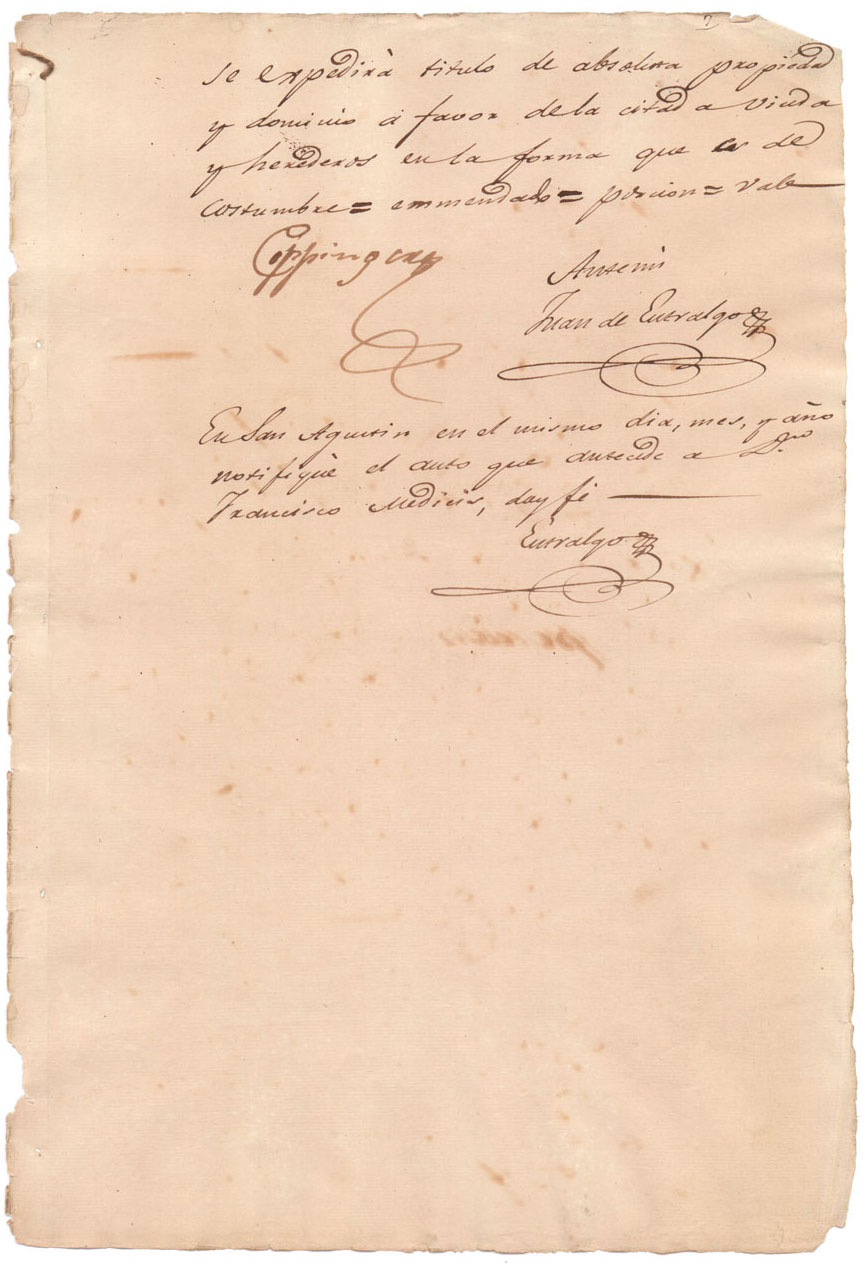 7
se expedirà titulo de absoluta propiedad
y dominio à favor de la citada viuda
y herederos en la forma que es de
costumbre = emmendado = porcion = vale
Coppinger
Antemi
Juan de Entralgo
En San Agustin en el mismo dia, mes, y año
notifiquè el auto que antecede a Dⁿ
Francisco Medicis, doy fé
Entralgo